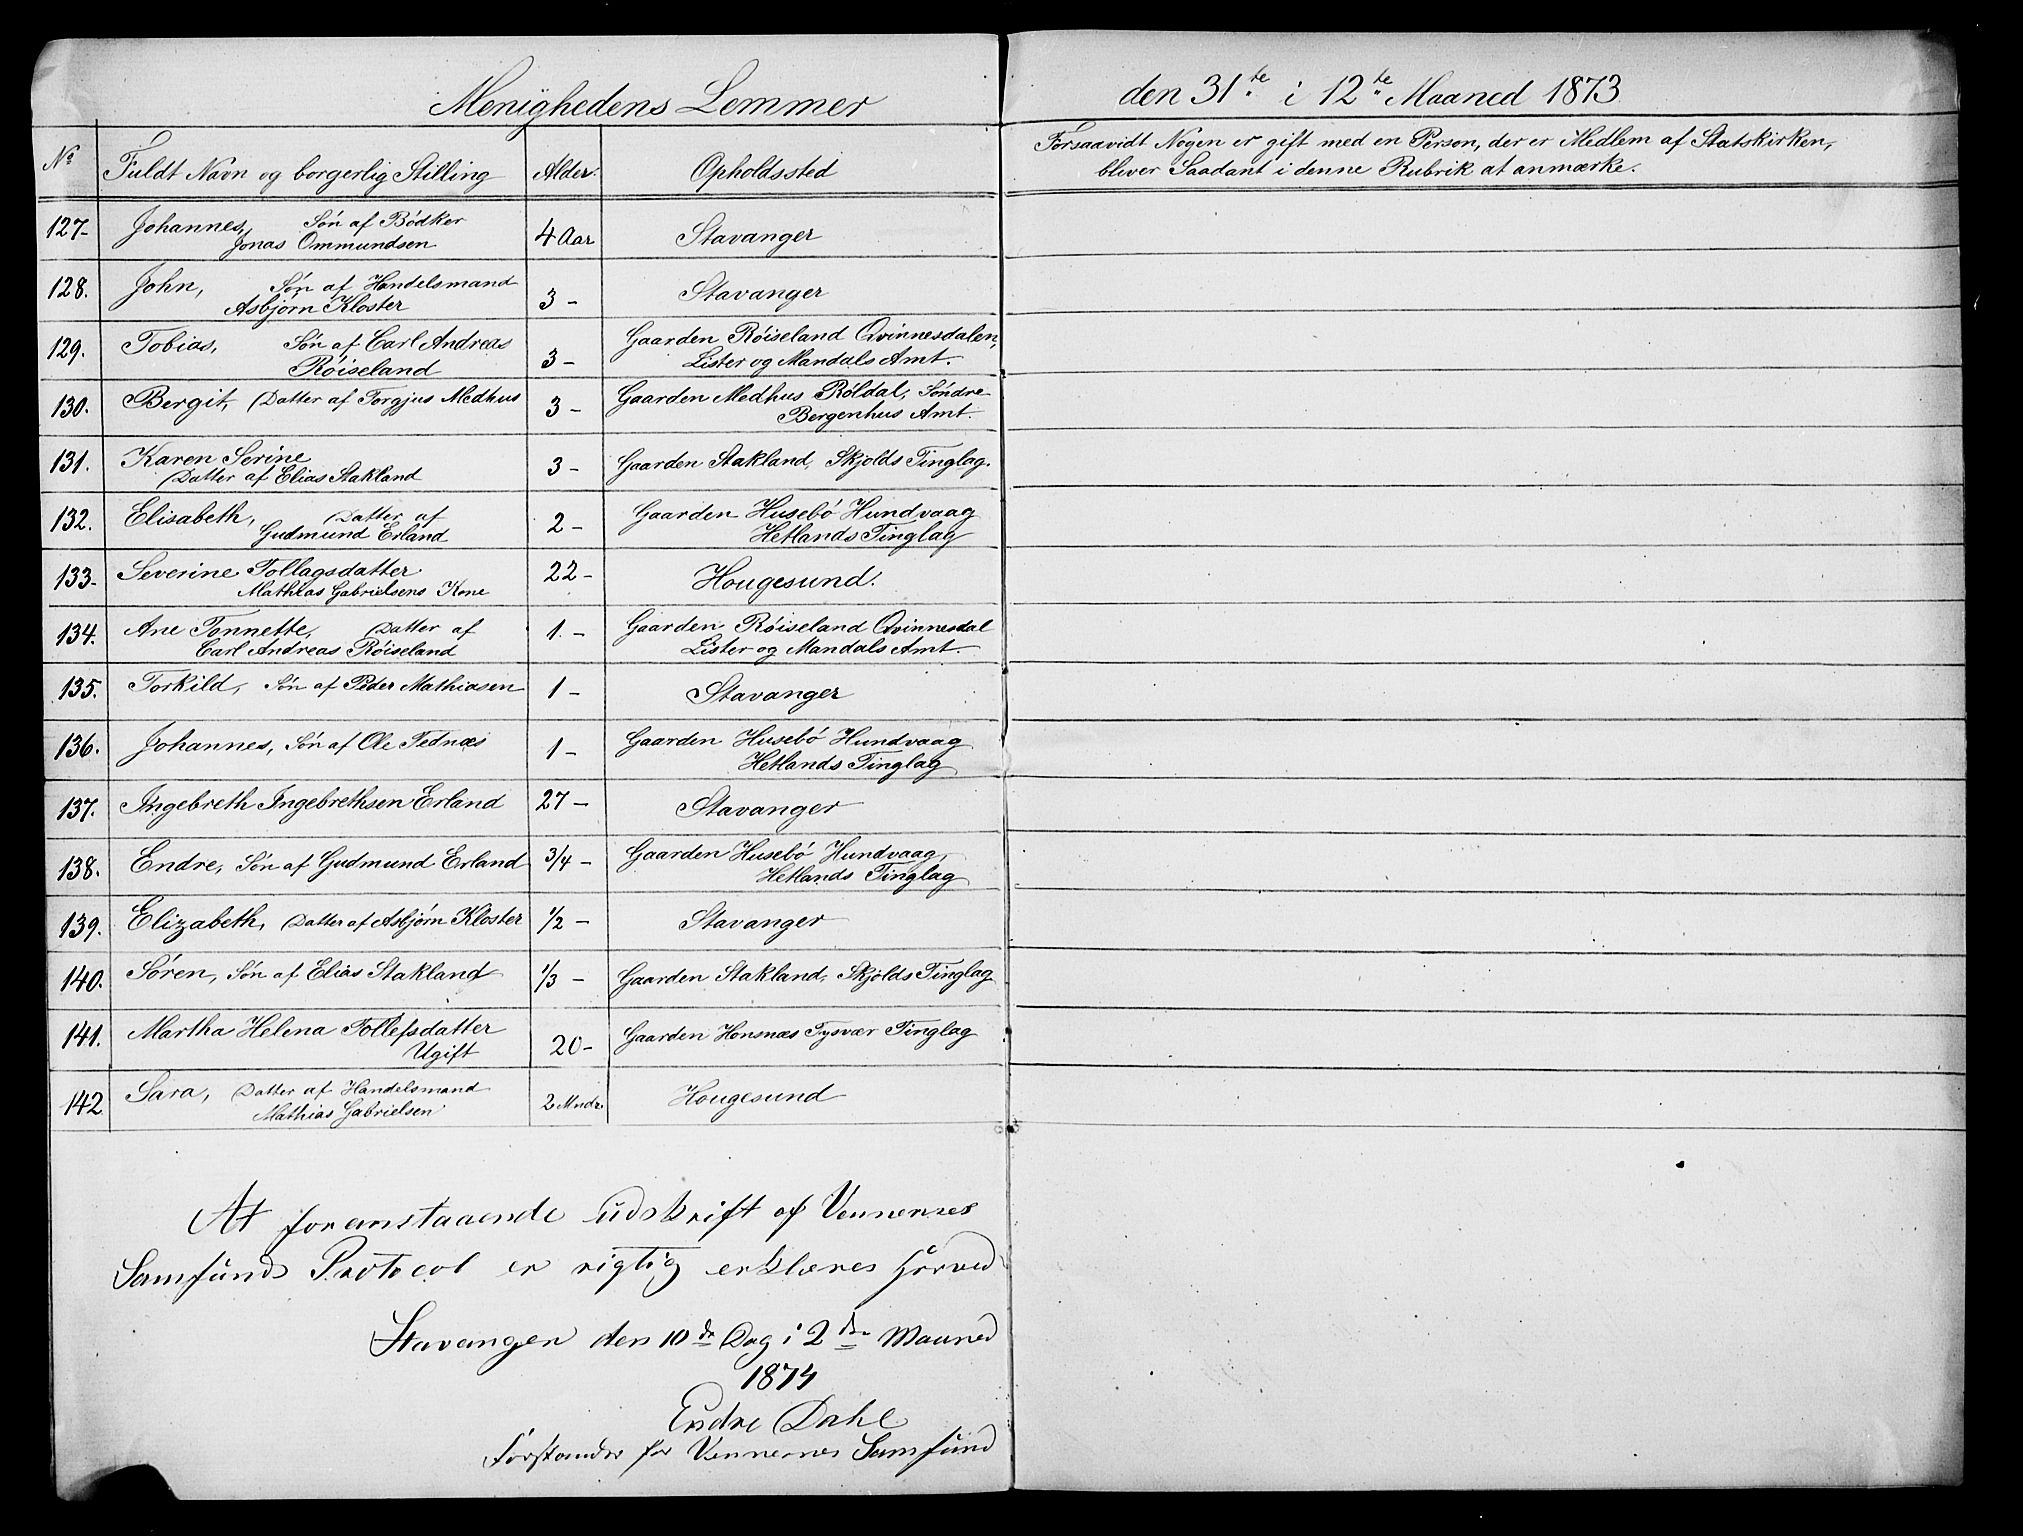 Menighedens Lemmer den 31te i 12te Maaned 1873
No Fuldt Navn og borgerlig Stilling Alder. Opholdssted Forsaavidt Nogen er gift med en Person, der er Medlem af Statskirken,
bliver Saadant i denne Rubrik at anmærke.
127- Johannes, Søn af Bödker
Jonas Ommundsen 4 Aar Stavanger
128. John, Søn af Handelsmand
Asbjørn Kloster 3 - Stavanger
129. Tobias, Søn af Carl Andreas
Röiseland 3 - Gaarden Röiseland Qvinnesdalen,
Lister og Mandals Amt.
130. Bergit, Datter af Torgjus Medhus 3 - Gaarden Medhus Röldal, Söndre
Bergenhus Amt.
131. Karen Serine
Datter af Elias Stakland 3 - Gaarden Stakland, Skjolds Tinglag.
132. Elisabeth, Datter af
Gudmund Erland 2 - Gaarden Husebö Hundvaag
Hetlands Tinglag
133- Severine Tollagsdatter
Mathias Gabrielsens Kone 22 - Hougesund.
134. Ane Tonnette, Datter af
Carl Andreas Röiseland 1. - Gaarden Röiseland Qvinnesdal
Lister og Mandals Amt.
135. Torkild, Søn af Peder Mathiasen 1 - Stavanger
136. Johannes, Søn af Ole Tednæs 1 - Gaarden Husebö Hundvaag
Hetlands Tinglag
137. Ingebreth Ingebrethsen Erland 27 - Stavanger
138. Endre, Søn af Gudmund Erland 3/4 - Gaarden Husebö Hundvaag,
Hetlands Tinglag
139. Elizabeth, Datter af Asbjørn Kloster 1/2 - Stavanger
140. Sören, Søn af Elias Stakland 1/3 - Gaarden Stakland, Skjolds Tinglag
141. Martha Helena Tollefsdatter
Ugift 20 - Gaarden Honsnæs Tysvær Tinglag
142 Sara, Datter af Handelsmand
Mathias Gabrielsen 2 Mndr. Hougesund
At foranstaaende Udskrift af Vennernes
Samfunds Protocol er rigtig erklæres herved
Stavanger den 10de Dag i 2den Maaned
1874
Endre Dahl
Forstander for Vennernes Samfund